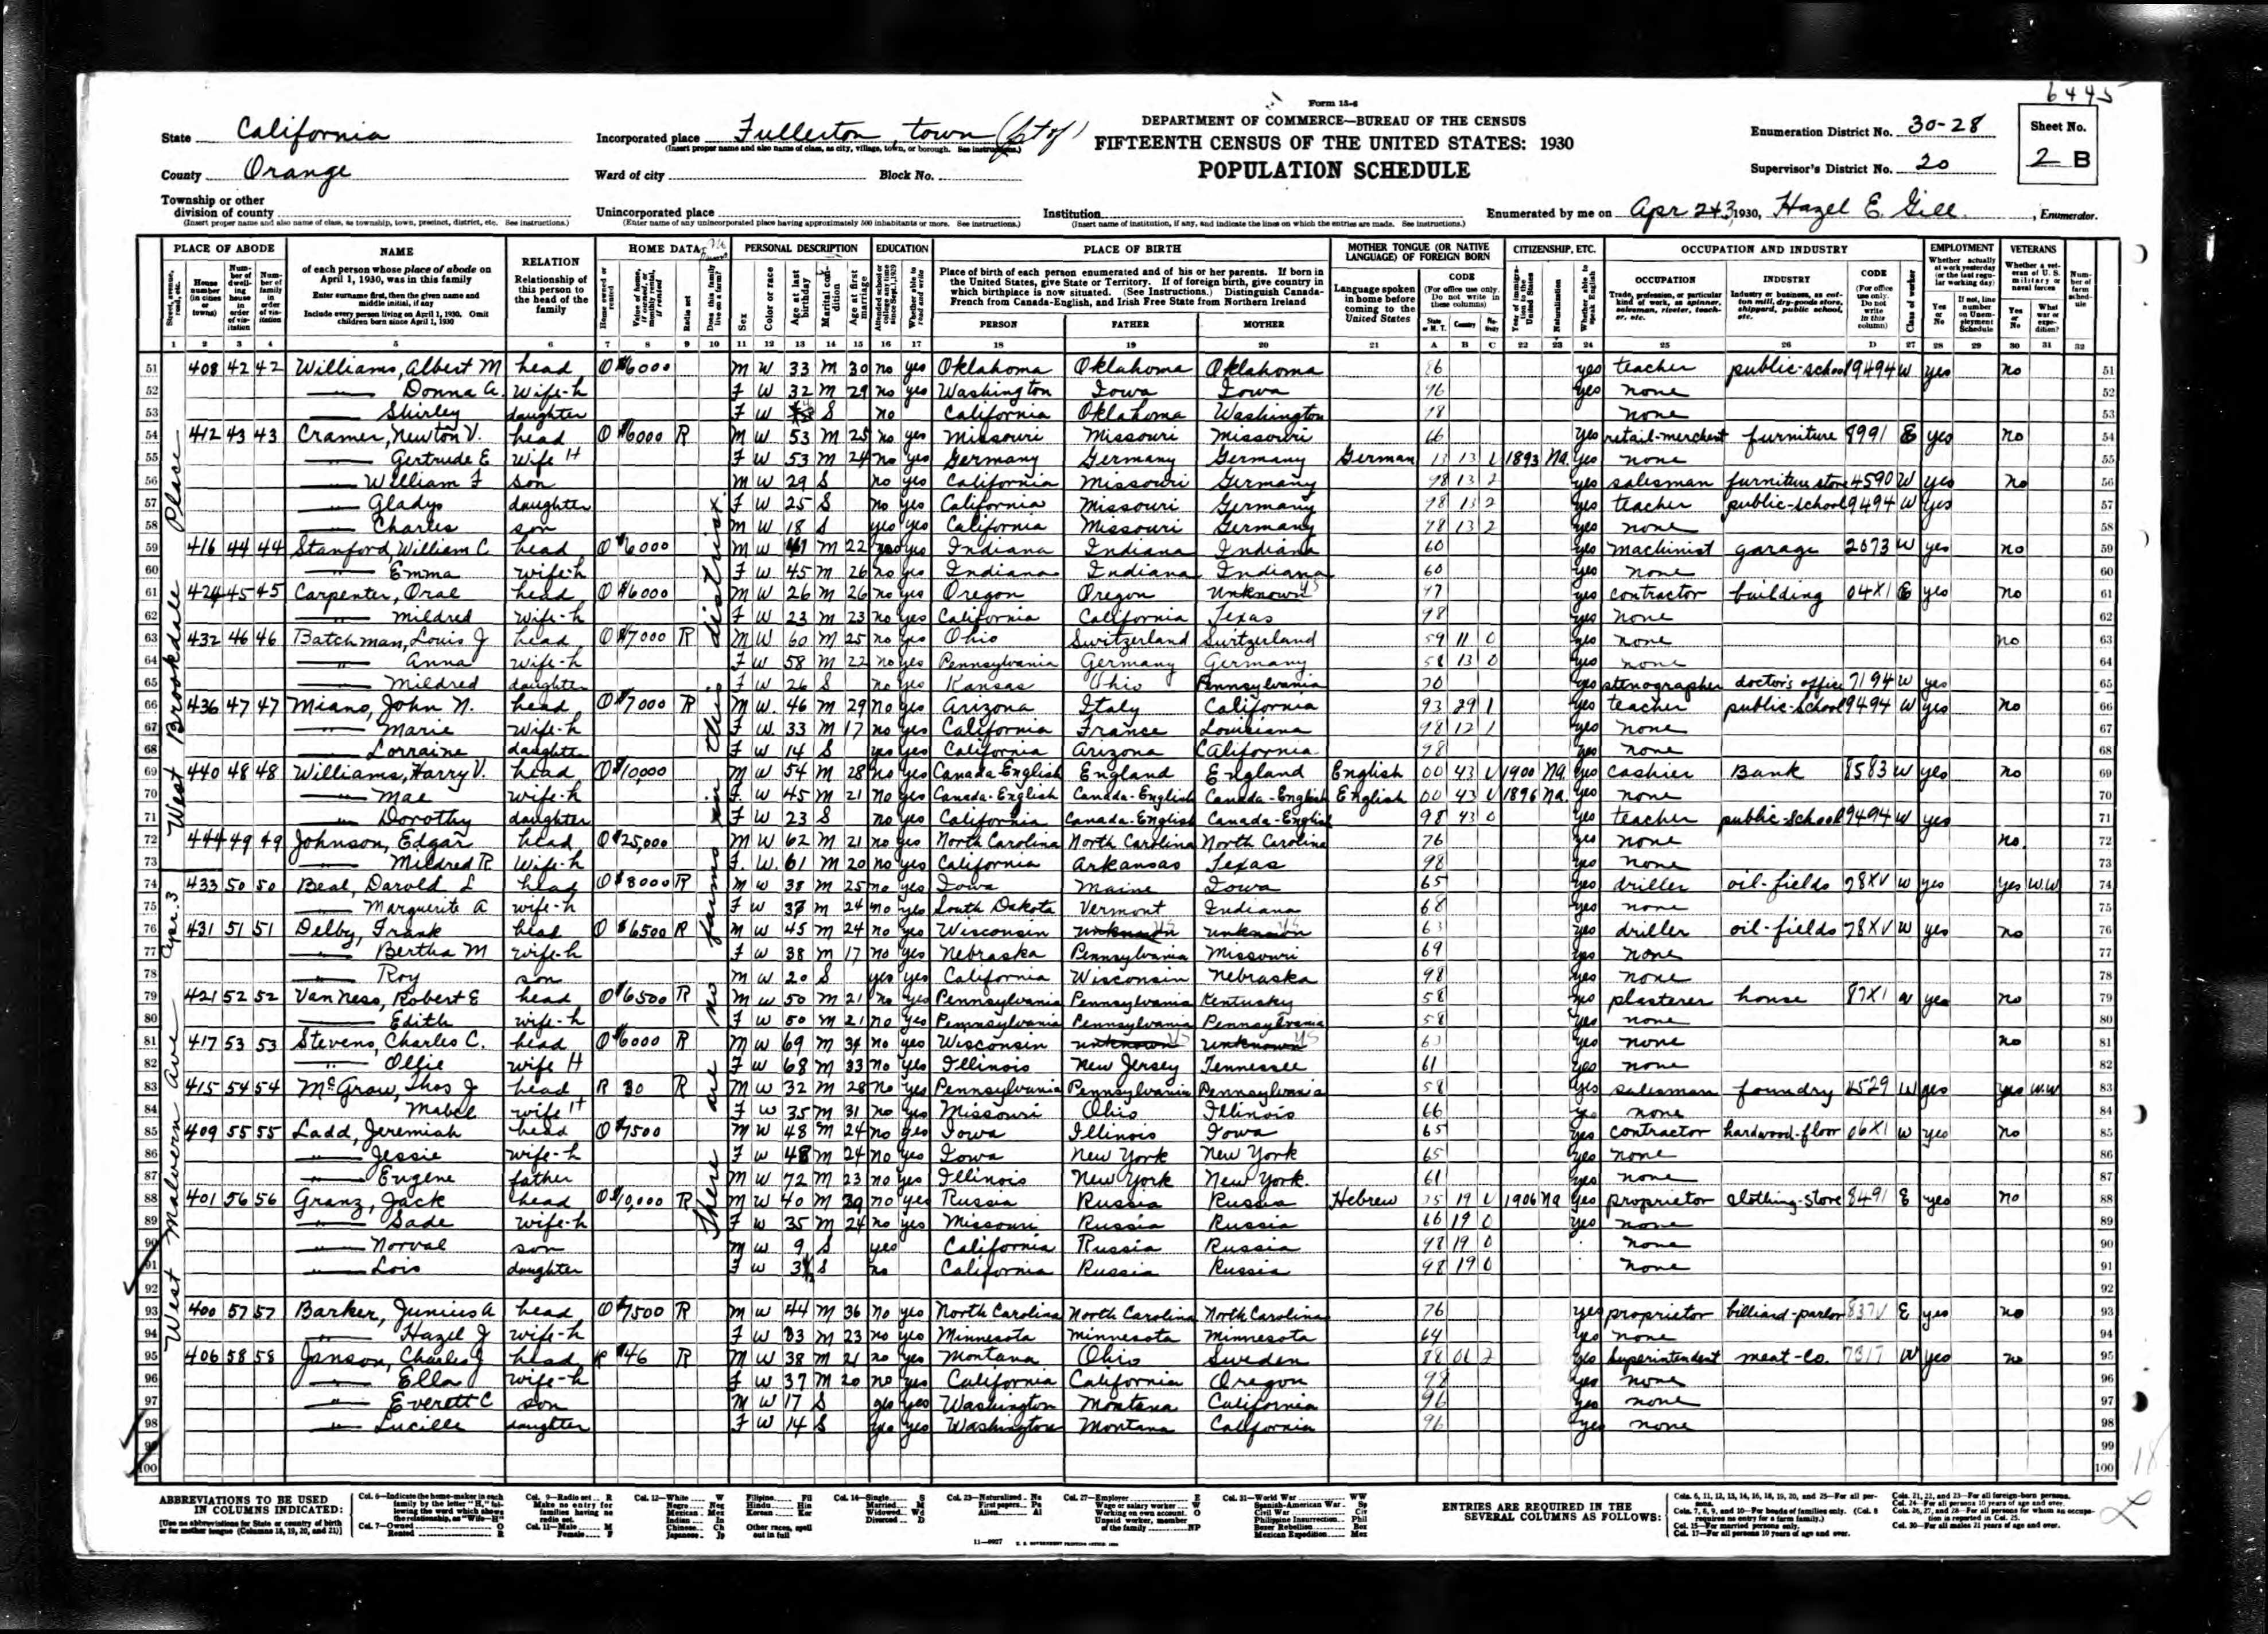 6445
Form 15-6
DEPARTMENT OF COMMERCE—BUREAU OF THE CENSUS
FIFTEENTH CENSUS OF THE UNITED STATES: 1930
POPULATION SCHEDULE
State California
County Orange
Township or other division of county
(Insert proper name and also name of class, as township, town, precinct, district, etc. See instructions.)
Incorporated place Fullerton, town
(Insert proper name and also name of class, as city, village, town, or borough. See instructions.)
Ward of city Block No.
Unincorporated place
(Enter name of any unincorporated place having approximately 500 inhabitants or more. See instructions.)
Institution
(Insert name of institution, if any, and indicate the lines on which the entries are made. See instructions.)
Enumeration District No. 30-28
Supervisor's District No. 20
Sheet No. 2 B
Enumerated by me on Apr 2 + 3, 1930, Hazel E. Gill, Enumerator.
PLACE OF ABODE NAME RELATION HOME DATA PERSONAL DESCRIPTION EDUCATION PLACE OF BIRTH MOTHER TONGUE (OR NATIVE LANGUAGE) OF FOREIGN BORN CITIZENSHIP, ETC. OCCUPATION AND INDUSTRY EMPLOYMENT VETERANS
of each person whose place of abode on April 1, 1930, was in this family
Enter surname first, then the given name and middle initial, if any
Include every person living on April 1, 1930. Omit children born since April 1, 1930
Relationship of this person to the head of the family
Place of birth of each person enumerated and of his or her parents. If born in the United States, give State or Territory. If of foreign birth, give country in which birthplace is now situated. (See Instructions.) Distinguish Canada-French from Canada-English, and Irish Free State from Northern Ireland
PERSON FATHER MOTHER
Language spoken in home before coming to the United States
OCCUPATION INDUSTRY CODE
West Brookdale Place
Apr. 3
West Malvern Ave
There are no farms in this district
51 408 42 42 Williams, Albert M head O $6000 M W 33 M 30 no yes Oklahoma Oklahoma Oklahoma 86 yes teacher public-school 9494 W yes no 51
52 Donna A. Wife-h F W 32 M 29 no yes Washington Iowa Iowa 96 yes none 52
53 Shirley daughter F W S no California Oklahoma Washington 98 none 53
54 412 43 43 Cramer, Newton V. head O $6000 R M W 53 M 25 no yes Missouri Missouri Missouri 66 yes retail-merchant furniture 8991 E yes no 54
55 Gertrude E Wife H F W 53 M 24 no yes Germany Germany Germany German 13 13 V 1893 Na. yes none 55
56 William F son M W 29 S no yes California Missouri Germany 98 13 2 yes salesman furniture store 4590 W yes no 56
57 Gladys daughter F W 25 S no yes California Missouri Germany 98 13 2 yes teacher public-school 9494 W yes 57
58 Charles son M W 18 S yes yes California Missouri Germany 98 13 2 yes none 58
59 416 44 44 Stanford, William C. head O $6000 M W M 22 no yes Indiana Indiana Indiana 60 yes machinist garage 2073 W yes no 59
60 Emma wife-h F W 45 M 26 no yes Indiana Indiana Indiana 60 yes none 60
61 424 45 45 Carpenter, Oral head O $6000 M W 26 M 26 no yes Oregon Oregon Unknown 97 yes contractor building 04X1 yes no 61
62 Mildred wife-h F W 23 M 23 no yes California California Texas 98 yes none 62
63 432 46 46 Batchman, Louis J head O $7000 R M W 60 M 25 no yes Ohio Switzerland Switzerland 59 11 0 yes none no 63
64 Anna wife-h F W 58 M 22 no yes Pennsylvania Germany Germany 58 13 0 yes none 64
65 Mildred daughter F W 26 S no yes Kansas Ohio Pennsylvania 70 yes stenographer doctor's office 7194 W yes 65
66 436 47 47 Miano, John N. head O $7000 R M W 46 M 29 no yes Arizona Italy California 93 29 1 yes teacher public-school 9494 W yes no 66
67 Marie wife-h F W 33 M 17 no yes California France Louisiana 98 12 1 yes none 67
68 Lorraine daughter F W 14 S yes yes California Arizona California 98 yes none 68
69 440 48 48 Williams, Harry V. head O $10,000 M W 54 M 28 no yes Canada-English England England English 00 43 V 1900 Na. yes cashier Bank 8583 W yes no 69
70 Mae wife-h F W 45 M 21 no yes Canada-English Canada-English Canada-English English 00 43 V 1896 Na. yes none 70
71 Dorothy daughter F W 23 S no yes California Canada-English Canada-English 98 43 0 yes teacher public-school 9494 W yes 71
72 444 49 49 Johnson, Edgar head O $25,000 M W 62 M 21 no yes North Carolina North Carolina North Carolina 76 yes none no. 72
73 Mildred R. Wife-h F W 61 M 20 no yes California Arkansas Texas 98 yes none 73
74 433 50 50 Beal, Darold L head O $8000 R M W 38 M 25 no yes Iowa Maine Iowa 65 yes driller oil-fields 28XV W yes yes W.W 74
75 Marguerite A wife-h F W 37 M 24 no yes South Dakota Vermont Indiana 68 yes none 75
76 431 51 51 Delby, Frank head O $6500 R M W 45 M 24 no yes Wisconsin unknown unknown 63 yes driller oil-fields 28XV W yes no 76
77 Bertha M wife-h F W 38 M 17 no yes Nebraska Pennsylvania Missouri 69 yes none 77
78 Roy son M W 20 S yes yes California Wisconsin Nebraska 98 yes none 78
79 421 52 52 Van Ness, Robert E head O $6500 R M W 50 M 21 no yes Pennsylvania Pennsylvania Kentucky 58 yes plasterer house 87X1 W yes no 79
80 Edith wife-h F W 50 M 21 no yes Pennsylvania Pennsylvania Pennsylvania 58 yes none 80
81 417 53 53 Stevens, Charles C. head O $6000 R M W 69 M 34 no yes Wisconsin unknown unknown 63 yes none no 81
82 Ollie wife H F W 68 M 33 no yes Illinois New Jersey Tennessee 61 yes none 82
83 415 54 54 McGraw, Thos J head R 30 R M W 32 M 28 no yes Pennsylvania Pennsylvania Pennsylvania 58 yes salesman foundry 4529 W yes yes W.W 83
84 Mabel wife H F W 35 M 31 no yes Missouri Ohio Illinois 66 yes none 84
85 409 55 55 Ladd, Jeremiah head O $7500 M W 48 M 24 no yes Iowa Illinois Iowa 65 yes contractor hardwood-floor 06X1 W yes no 85
86 Jessie wife-h F W 48 M 24 no yes Iowa New York New York 65 yes none 86
87 Eugene father M W 72 M 23 no yes Illinois New York New York. 61 yes none 87
88 401 56 56 Granz, Jack head O $10,000 R M W 40 M no yes Russia Russia Russia Hebrew 19 V 1906 Na yes proprietor clothing-store 8491 E yes no 88
89 Sade wife-h F W 35 M 24 no yes Missouri Russia Russia 66 19 0 yes none 89
90 Norval son M W 9 S yes California Russia Russia 98 19 0 none 90
91 Lois daughter F W 3 S no California Russia Russia 98 19 0 none 91
92 92
93 400 57 57 Barker, Junius A head O $7500 R M W 44 M 36 no yes North Carolina North Carolina North Carolina 76 yes proprietor billiard-parlor 837V E yes no 93
94 Hazel J wife-h F W 33 M 23 no yes Minnesota Minnesota Minnesota 64 yes none 94
95 406 58 58 Janson, Charles J head R $46 R M W 38 M 21 no yes Montana Ohio Sweden yes Superintendent meat-co. W yes no 95
96 Ella wife-h F W 37 M 20 no yes California California Oregon 98 yes none 96
97 Everett C son M W 17 S yes yes Washington Montana California 96 yes none 97
98 Lucille daughter F W 14 S yes yes Washington Montana California 96 yes none 98
99 99
100 100
ABBREVIATIONS TO BE USED IN COLUMNS INDICATED:
ENTRIES ARE REQUIRED IN THE SEVERAL COLUMNS AS FOLLOWS: